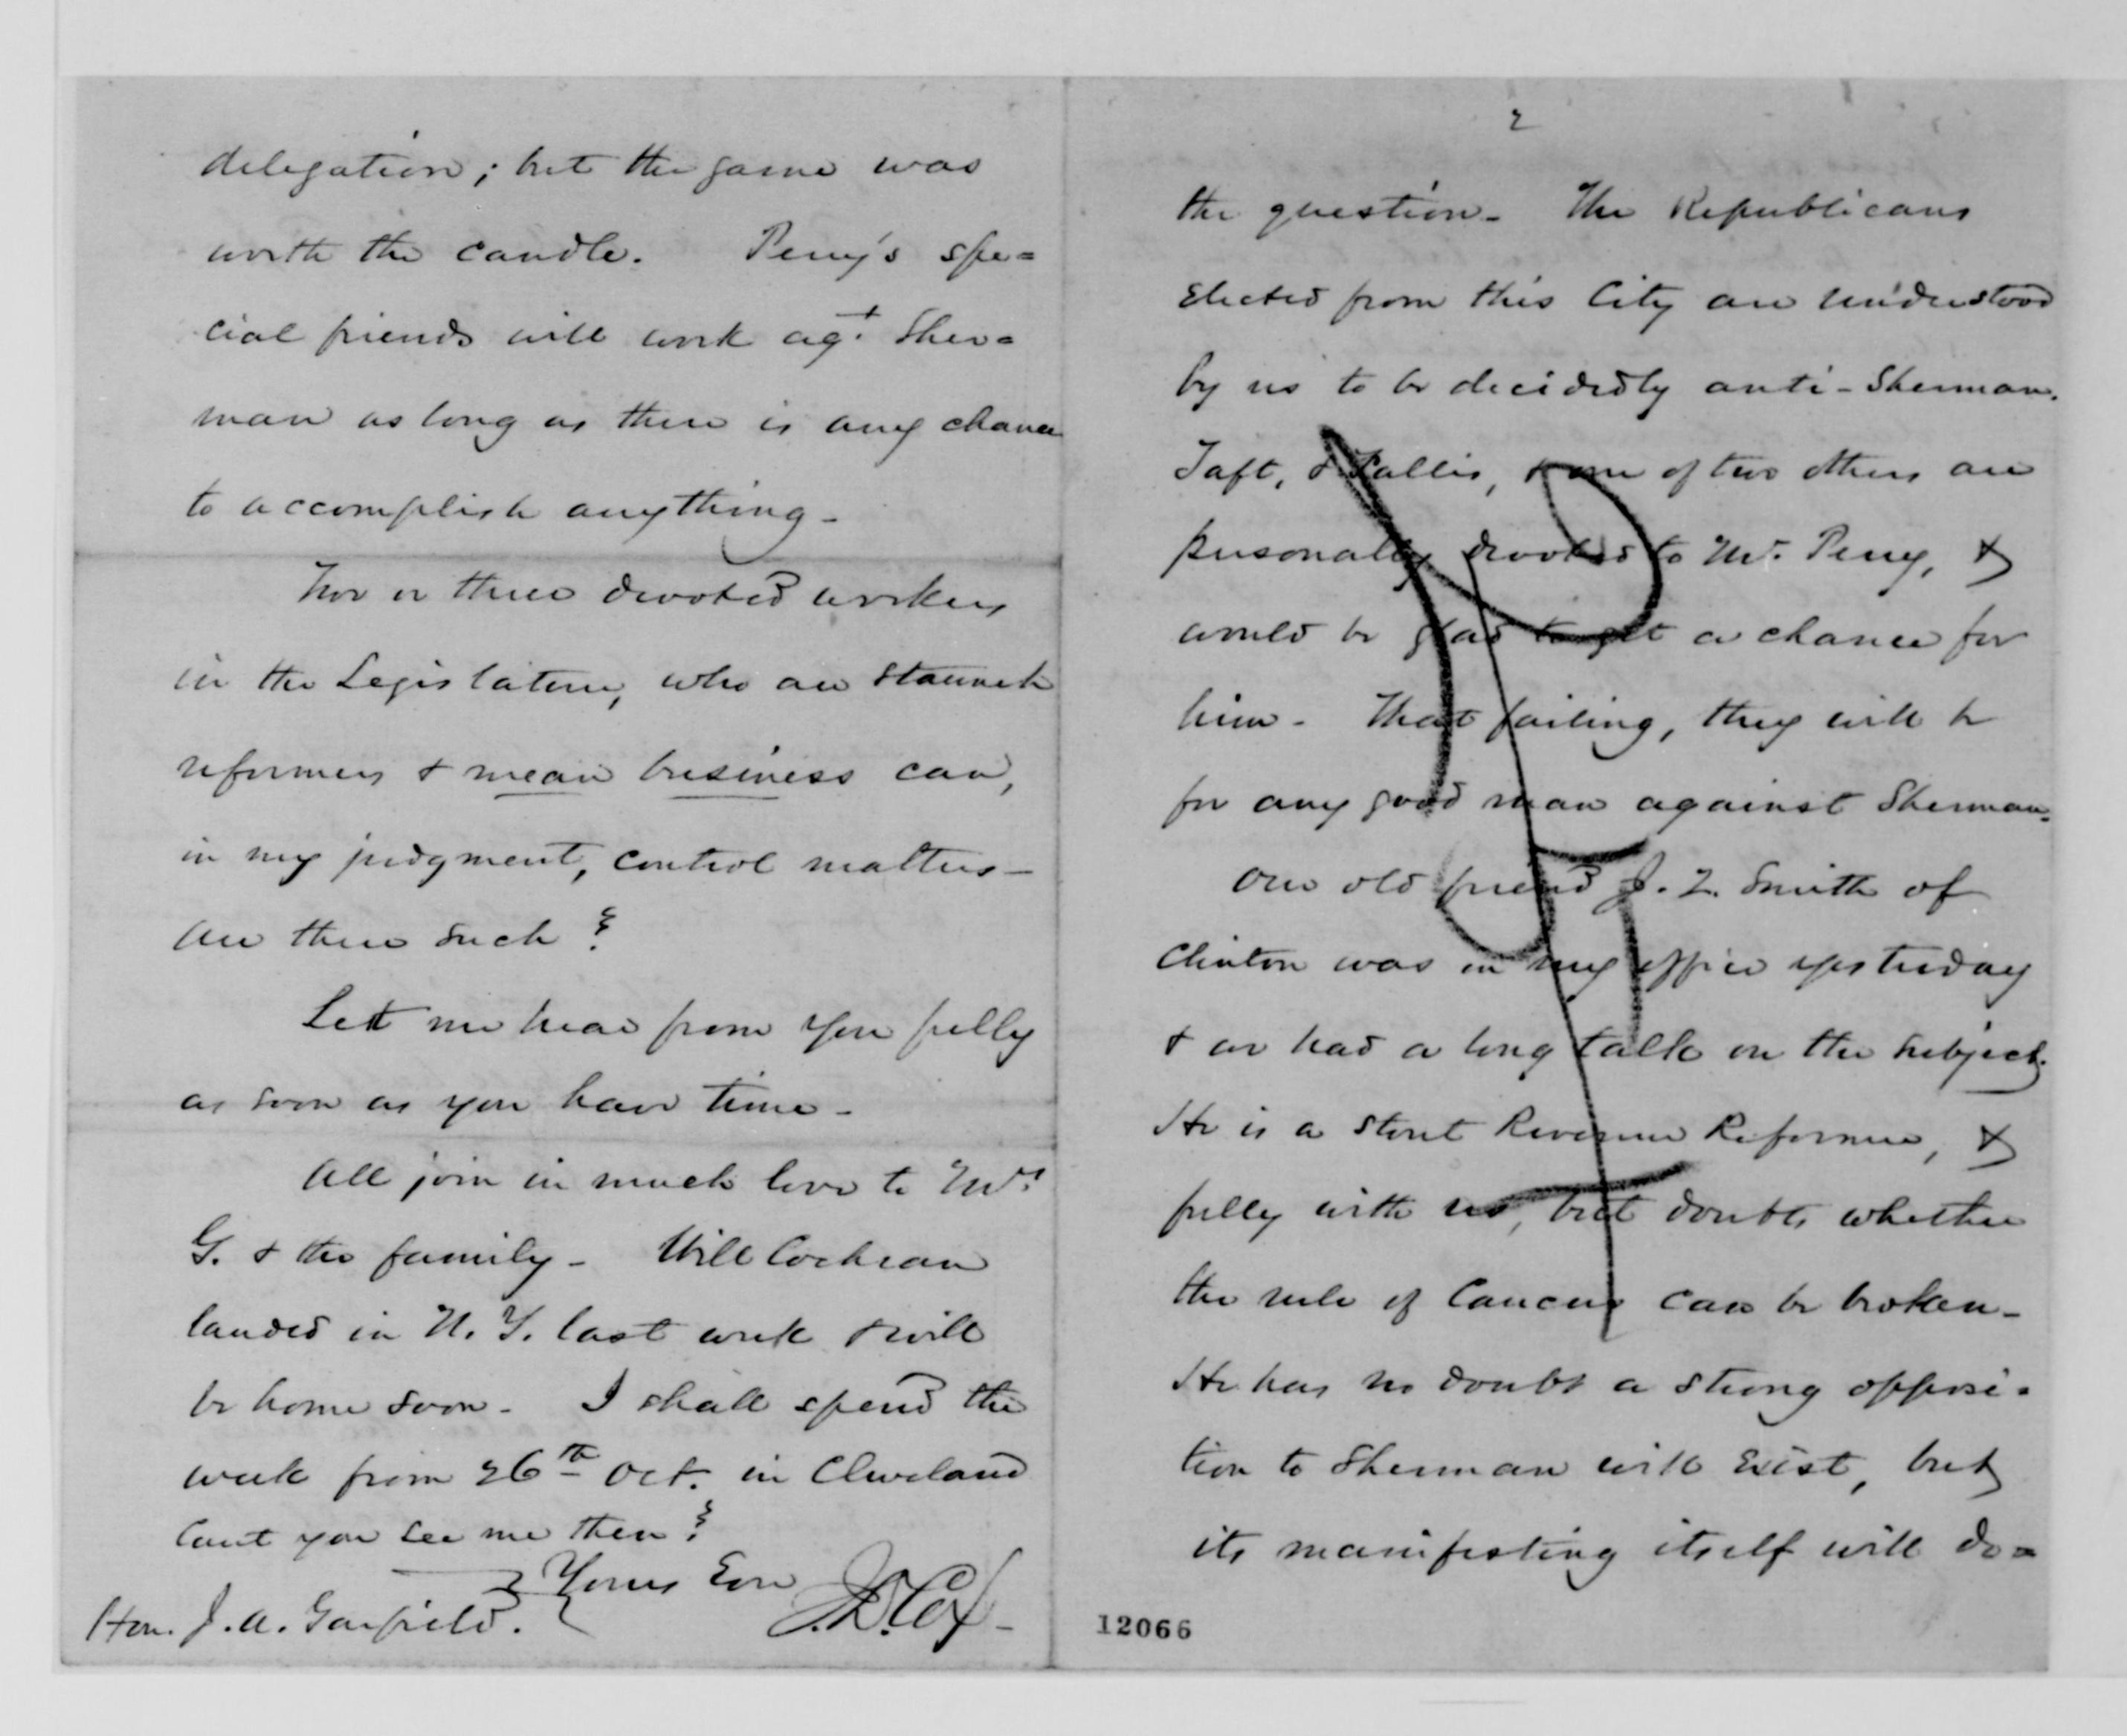 delegation; but the game was
worth the candle. Perry's spe=
cial friends will work agt. Sher=
man as long as there is any chance
to accomplish anything-
Two or three devoted workers
in the Legislature, who are staunch
reformers & mean business can,
in my judgment, control matters-
Are there such?
Let me hear from you fully
as soon as you have time-
All join in much love to Mrs.
G. & the family- Will Cochran
landed in N.Y. last week & will
be home soon- I shall spend the
week from 26th Oct. in Cleveland
Cant you see me then?
Yours Ever
J.D. Cox-
Hon. J.A. Garfield.
2
the question- The Republicans
elected from this City are understood
by us to be decidedly anti-Sherman.
Taft, & Sallis, & one of two others are
personally devoted to Mr. Perry, &
would be glad to get a chance for
him- That failing, they will be
for any good man against Sherman.
Our old friend J. Q. Smith of
Clinton was in my office yesterday
& we had a long talk on the subject.
He is a stout Revenue Reformer, &
fully with us, but doubts whether
the rule of Caucus can be broken-
He has no doubt a strong opposi=
tion to Sherman will exist, but
its manifesting itself will de=
12066